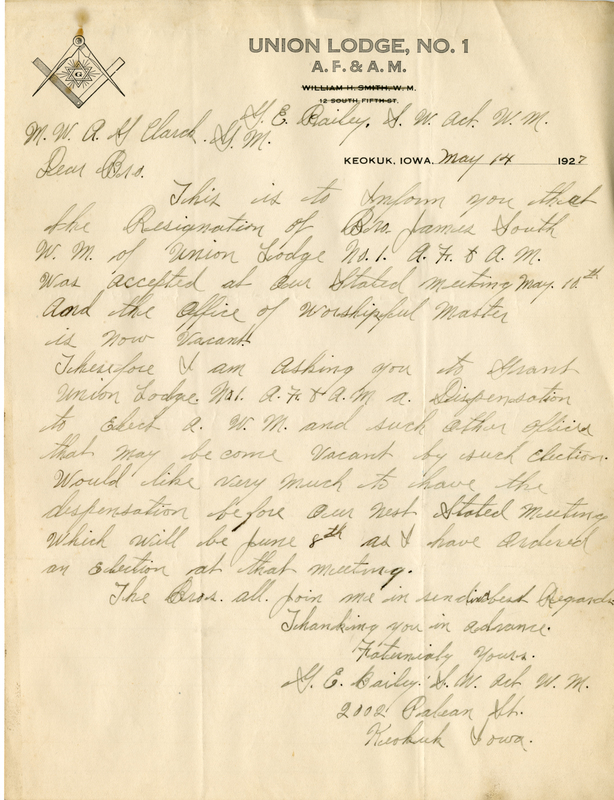 G
UNION LODGE, NO. 1
A. F. & A. M.
WILLIAM H. SMITH, W. M.
12 SOUTH FIFTH ST.
G. E. Bailey. S. W. act. W. M.
M. W. A. G Clarck. G. M.
KEOKUK, IOWA, May 14 1927
Dear Bro.
This is to Inform you that
the Resignation of Bro. James South
W. M. of Union Lodge No. 1. A. F. & A. M.
Was accepted at our Stated meeting May. 10th
And the Office of Worshipful Master
is now Vacant.
Therefore I am Asking you to Grant
Union Lodge. No1. A. F. & A. M a. Dispensation
to Elect a. W. M. and such other offices
that may become Vacant by such Election.
Would like very much to have the
dispensation before our next Stated Meeting
Which will be June 8th as I have ordered
an Election at that meeting.
The Bros. all. Join me in sending best Regards
Thanking you in advance.
Faternialy Yours.
G. E. Bailey. S. W. act W. M.
2002 St.
Keokuk Iowa.